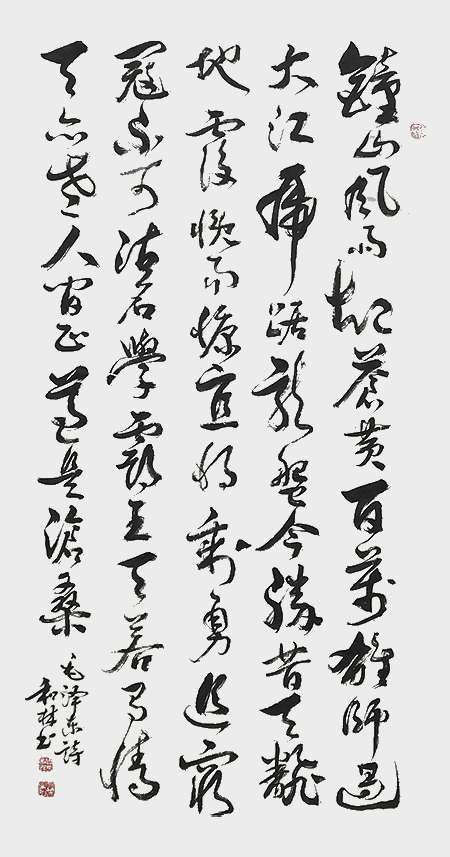 鐘山风雨起蒼黄百萬雄師過
大江虎踞龙盤今勝昔天翻
地覆慨而慷宜將剩勇追窮
寇不可沽名學霸王天若有情
天亦老人间正道是滄桑
毛泽东詩
和林书